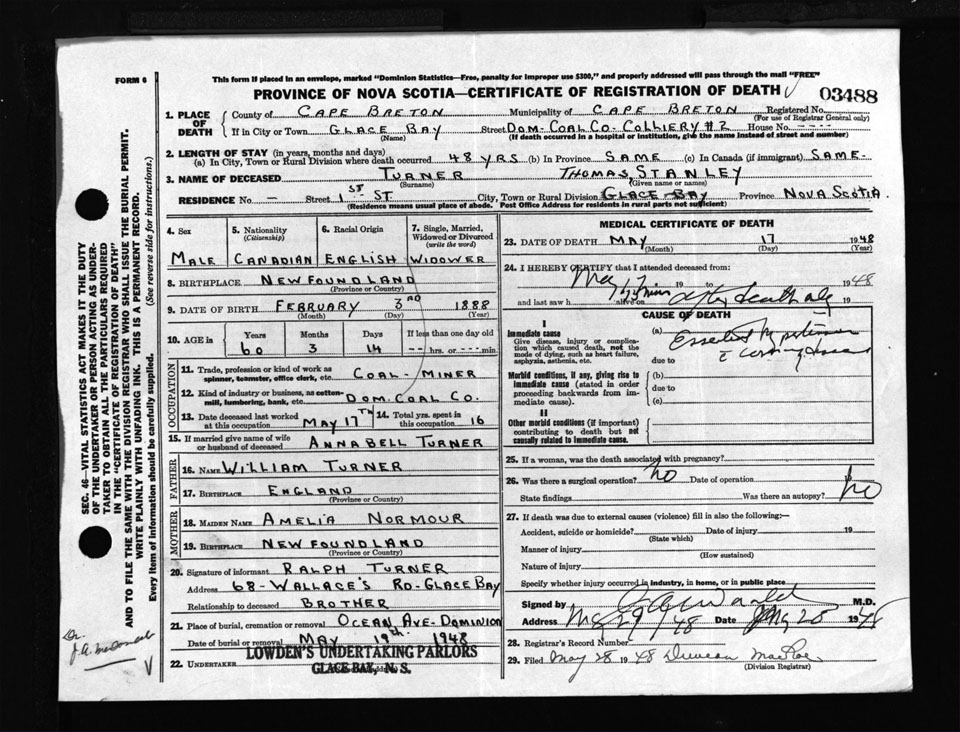 FORM 6
This form if placed in an envelope, marked "Dominion Statistics—Free, penalty for improper use $300," and properly addressed will pass through the mail "FREE"
PROVINCE OF NOVA SCOTIA—CERTIFICATE OF REGISTRATION OF DEATH
03488
1. PLACE OF DEATH
County of CAPE BRETON Municipality of CAPE BRETON Registered No.
(For use of Registrar General only)
If in City or Town GLACE BAY Street DOM-COAL CO. COLLIERY #2 House No. ----
(Name) (If death occurred in a hospital or institution, give the name instead of street and number)
2. LENGTH OF STAY (in years, months and days)
(a) In City, Town or Rural Division where death occurred 48 YRS (b) In Province SAME (c) In Canada (if immigrant) SAME-
3. NAME OF DECEASED TURNER THOMAS, STANLEY
(Surname) (Given name or names)
RESIDENCE No — Street 1ST ST City, Town or Rural Division GLACE-BAY Province NOVA SCOTIA
(Residence means usual place of abode. Post Office Address for residents in rural parts not sufficient)
4. Sex
MALE
5. Nationality
(Citizenship)
CANADIAN
6. Racial Origin
ENGLISH
7. Single, Married, Widowed or Divorced
(write the word)
WIDOWER
8. BIRTHPLACE NEWFOUNDLAND
(Province or Country)
9. DATE OF BIRTH FEBRUARY 3RD 1888
(Month) (Day) (Year)
10. AGE in Years Months Days If less than one day old
60 3 14 -- hrs. or --- min.
OCCUPATION
11. Trade, profession or kind of work as spinner, teamster, office clerk, etc. COAL-MINER
12. Kind of industry or business, as cotton-mill, lumbering, bank, etc. DOM. COAL CO.
13. Date deceased last worked at this occupation MAY 17TH
14. Total yrs. spent in this occupation 16
15. If married give name of wife or husband of deceased ANNABELL TURNER
FATHER
16. NAME WILLIAM TURNER
17. BIRTHPLACE ENGLAND
(Province or Country)
MOTHER
18. MAIDEN NAME AMELIA NORMOUR
19. BIRTHPLACE NEWFOUNDLAND
(Province or Country)
20. Signature of informant RALPH TURNER
Address 68-WALLACE'S RD-GLACE BAY
Relationship to deceased BROTHER
21. Place of burial, cremation or removal OCEAN AVE-DOMINION
Date of burial or removal MAY 19th 1948
22. UNDERTAKER LOWDEN'S UNDERTAKING PARLORS
GLACE BAY, N. S.
MEDICAL CERTIFICATE OF DEATH
23. DATE OF DEATH MAY 17 1948
(Month) (Day) (Year)
24. I HEREBY CERTIFY that I attended deceased from:
May 19 to 1948
and last saw h alive on after death 19
CAUSE OF DEATH
I
Immediate cause
Give disease, injury or complication which caused death, not the mode of dying, such as heart failure, asphyxia, asthenia, etc.
(a) Essential
due to
Morbid conditions, if any, giving rise to immediate cause (stated in order proceeding backwards from immediate cause).
(b)
due to
(c)
II
Other morbid conditions (if important) contributing to death but not causally related to immediate cause.
25. If a woman, was the death associated with pregnancy?
26. Was there a surgical operation? no Date of operation
State findings Was there an autopsy? no
27. If death was due to external causes (violence) fill in also the following:—
Accident, suicide or homicide? Date of injury 19
(State which)
Manner of injury
(How sustained)
Nature of injury
Specify whether injury occurred in industry, in home, or in public place
Signed by M.D.
Address Date 1948
28. Registrar's Record Number
29. Filed May 28 1948 Duncan MacRae
(Division Registrar)
SEC. 46—VITAL STATISTICS ACT MAKES IT THE DUTY
OF THE UNDERTAKER OR PERSON ACTING AS UNDER-
TAKER TO OBTAIN ALL THE PARTICULARS REQUIRED
IN THE "CERTIFICATE OF REGISTRATION OF DEATH"
AND TO FILE THE SAME WITH THE DIVISION REGISTRAR WHO SHALL ISSUE THE BURIAL PERMIT.
WRITE PLAINLY WITH UNFADING INK. THIS IS A PERMANENT RECORD.
Every item of information should be carefully supplied. (See reverse side for instructions.)
Dr.